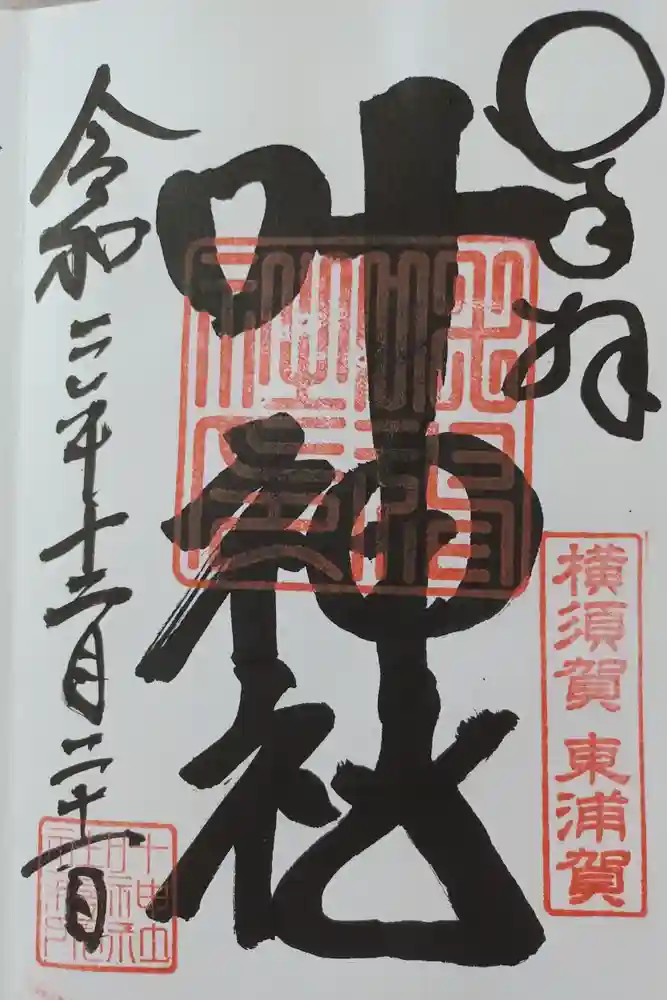 奉拝
横須賀 東浦賀
叶神社
令和二年十二月二十一日